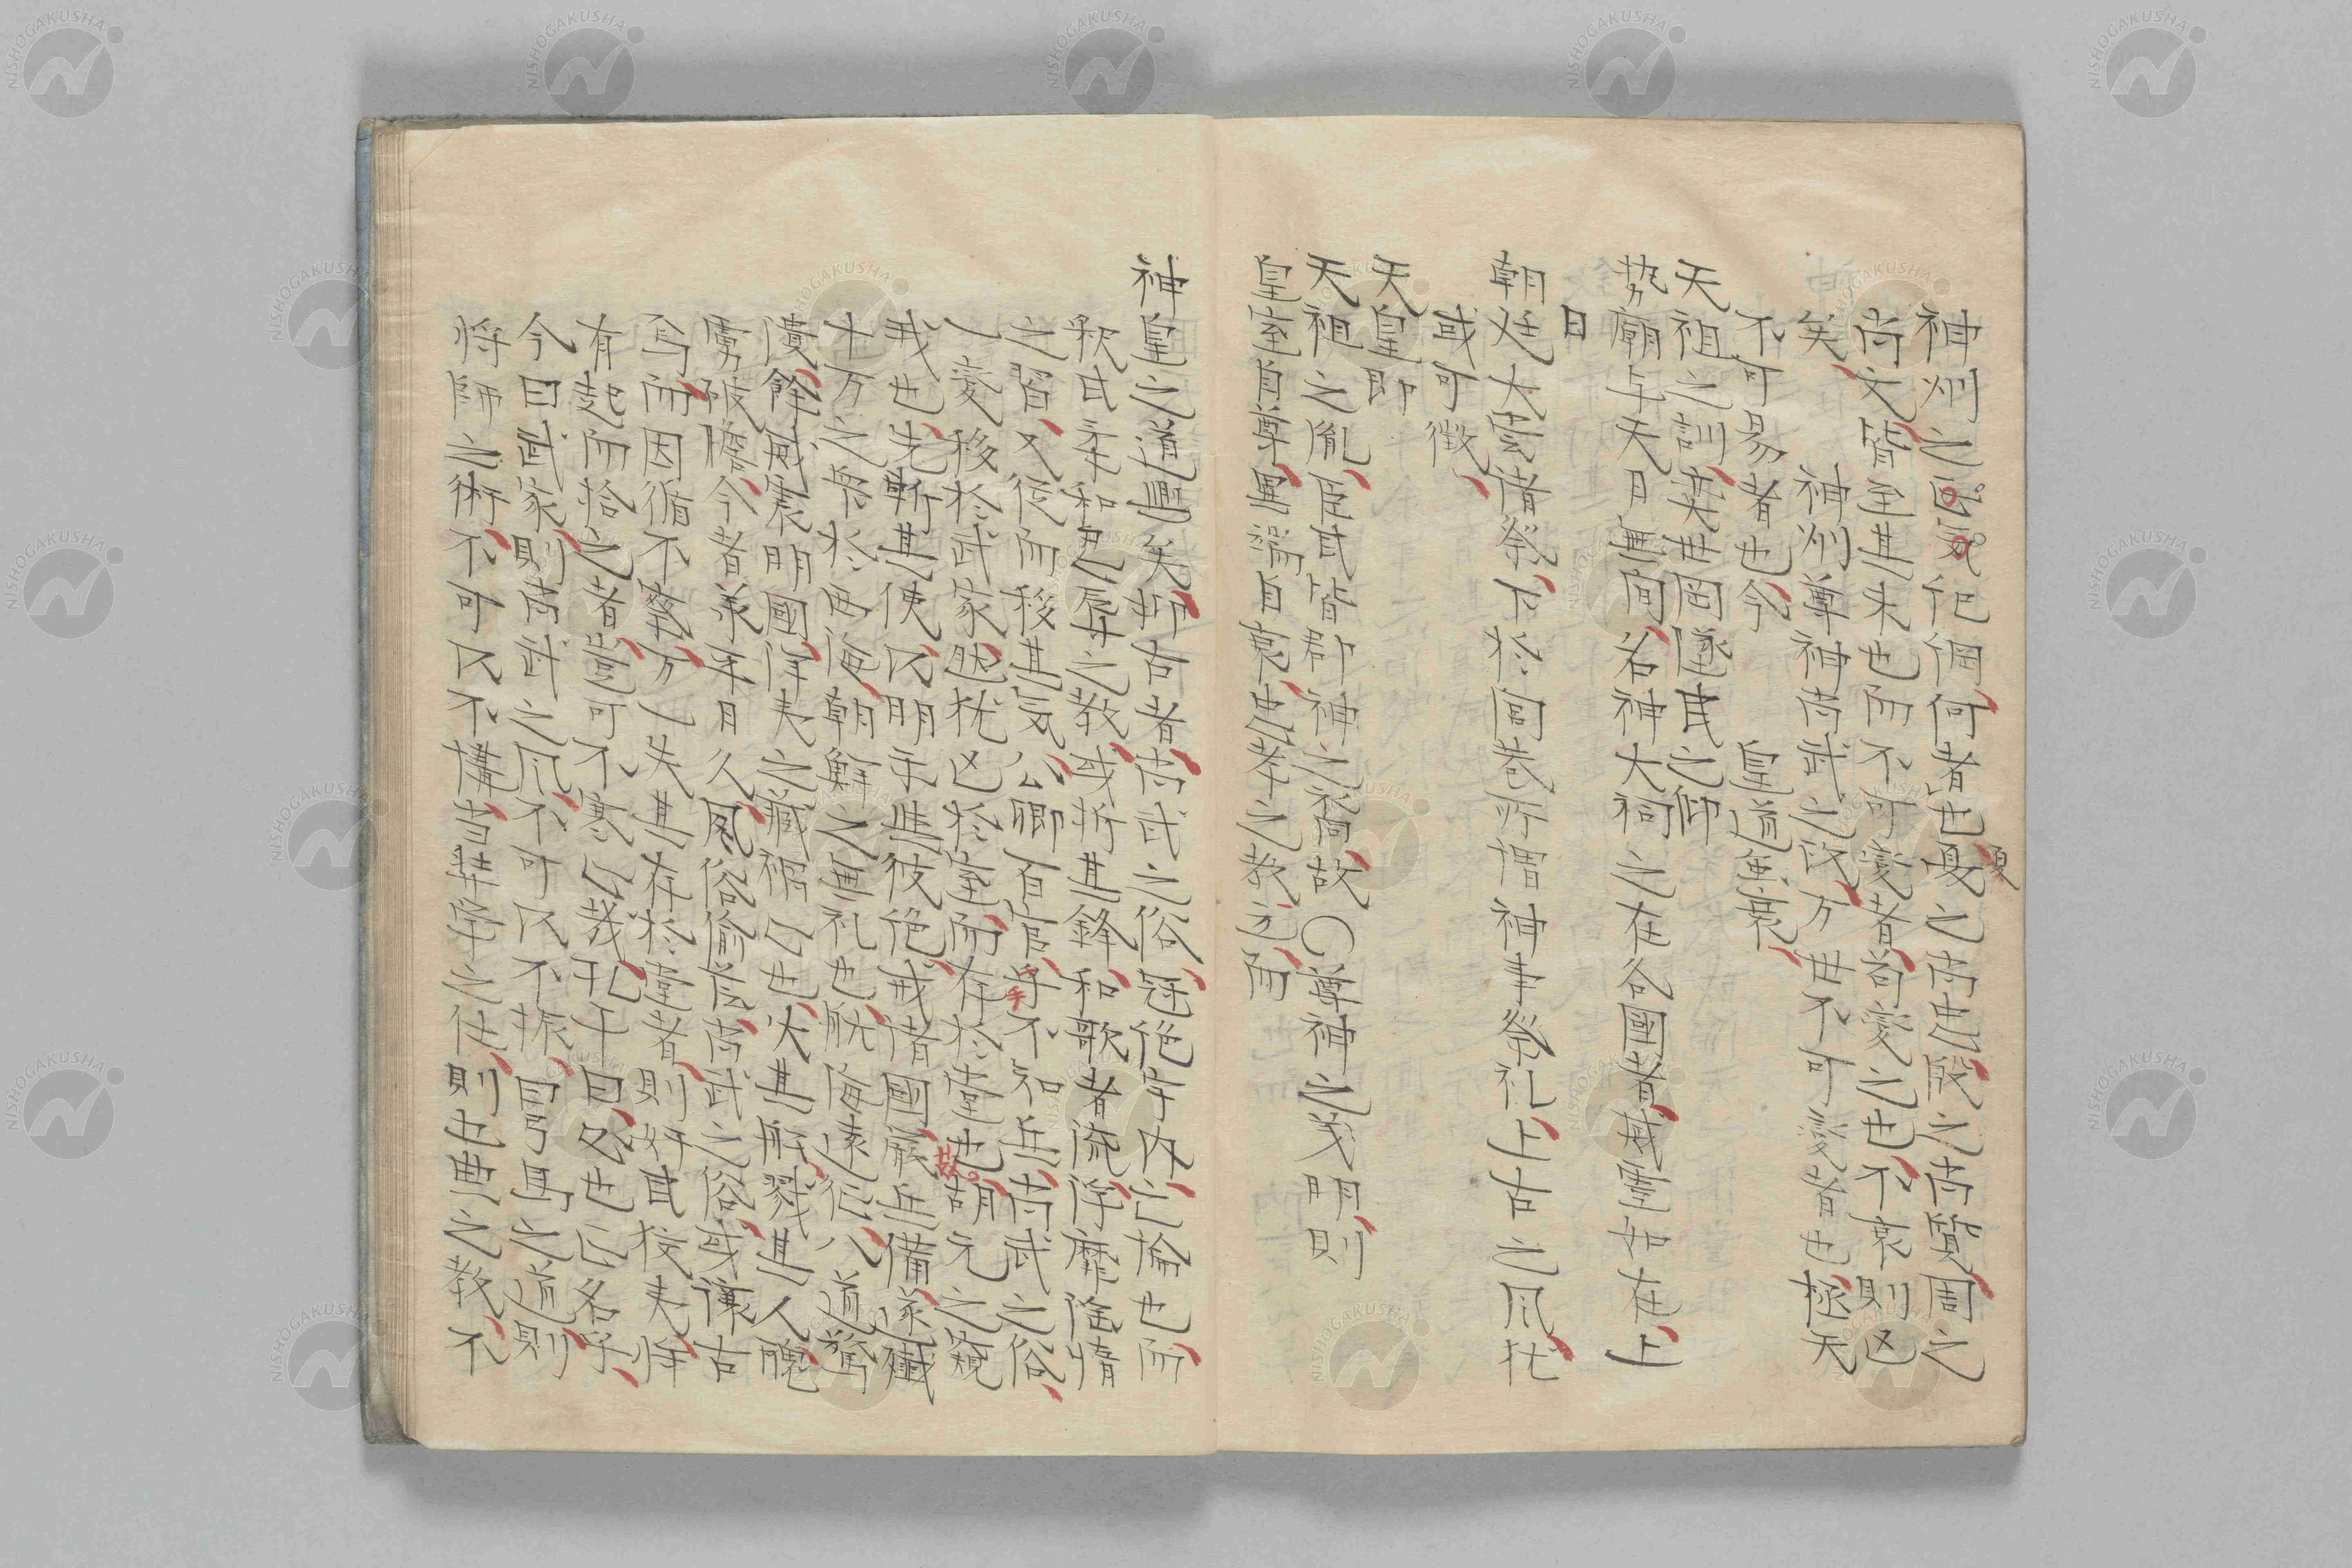 神州之正気紀綱何者也夏之尚忠殷之尚質周之
尚文皆至其末也而不可變者尚變之也不衰則凶
矣　神州尊神尚武之政万世不可變者也極天
不可易者也今　皇道衰
天祖之訓奕世罔墜民之仰
勢廟与天日無間名神大祠之在各國者威霊如在上
日
朝廷大嘗諸祭下於閭巷所謂神事祭礼上古之風猶
或可徴
天皇即
天祖之胤臣民皆群神之裔故〇尊神之義明則
皇室自尊異端自衰忠孝之教立而
神皇之道興矣抑古者尚武之俗冠絶宇内亡論也而
釈氏柔和忍辱之教或折其鋒和歌者流浮靡惰惰
之習又従而移其気公卿百官乎不知兵尚武之俗
一変移於武家然猶凶於室而存於堂也故胡元之窺
我也先斬其使以明示與彼絶戒諸國厳兵備遂殲
十万之衆於西海朝鮮之無礼也航海遠征八道驚
潰餘威震明國俘夷之藏禍心也火其船戮其人醜
虜破膽今者承平日久風俗偷薄尚武之俗或讓古
焉而因循不察万一失其存於堂者則奸民狡夷将
有起而拾之者豈可不寒心哉孔子曰必也正名乎
今日武家則尚武之風不可以不振曰弓馬之道則
将師之術不可以不講当華宰之任則忠典之教不